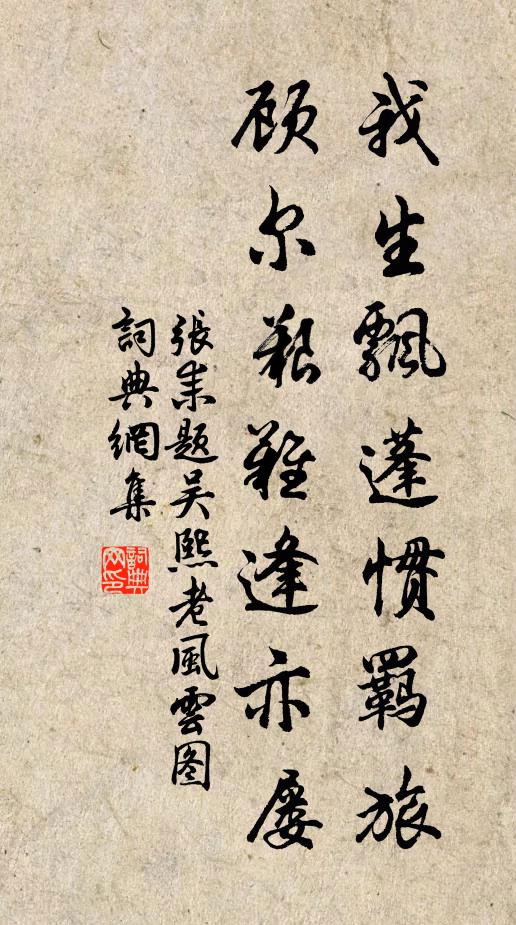 我生飄蓬慣羈旅
顾尔艱難逢亦屡
張耒題吴熙老風雲图
詞典網集
詞典网印